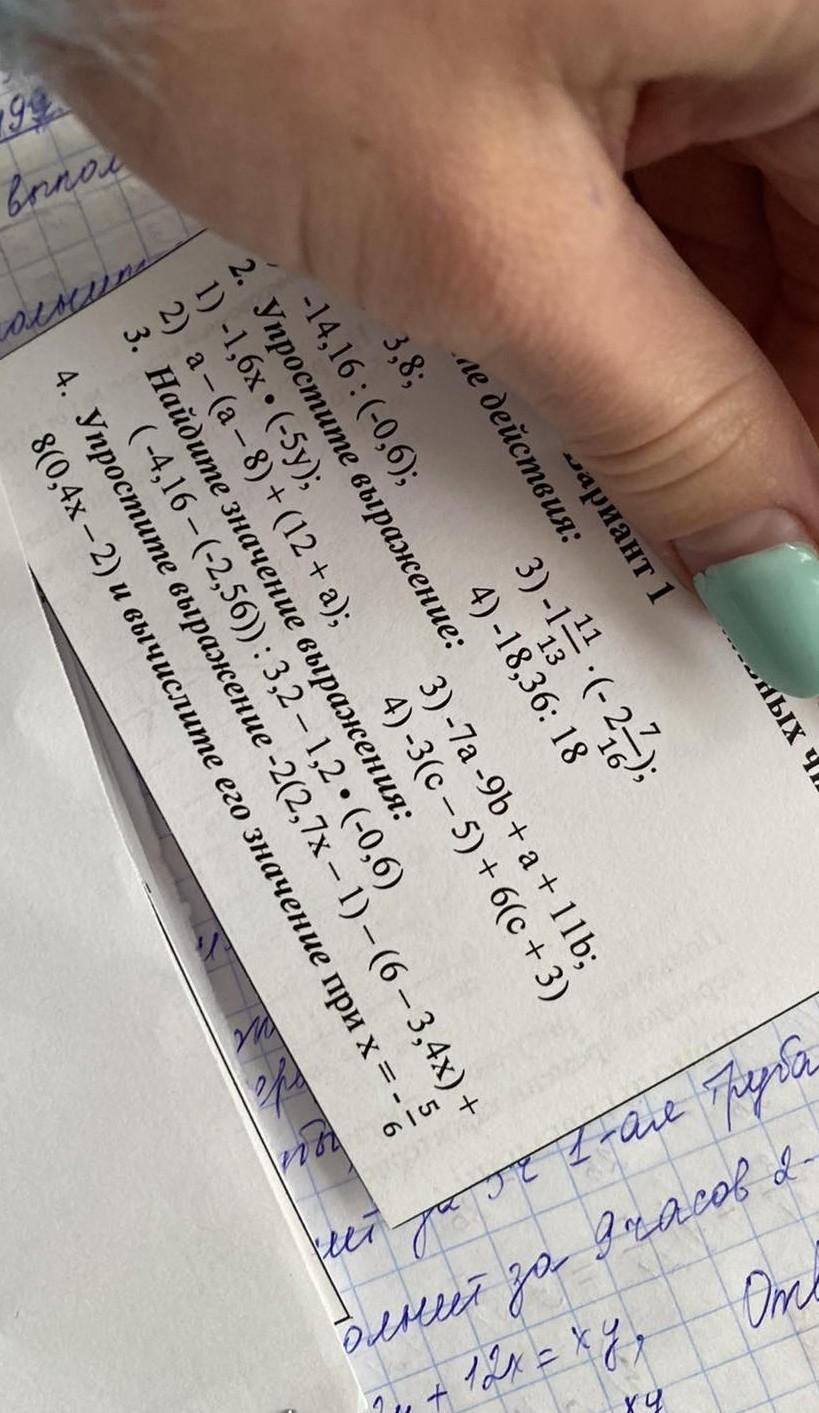 ариант 1
ле действия:
3,8;
-14,16 : (-0,6);
3) -1 11/13 · (- 2 7/16);
4) -18,36: 18
2. Упростите выражение:
1) -1,6x • (-5y);
2) a – (a – 8) + (12 + a);
3) -7a -9b + a + 11b;
4) -3(c – 5) + 6(c + 3)
3. Найдите значение выражения:
( -4,16 – (-2,56)) : 3,2 – 1,2 • (-0,6)
4. Упростите выражение -2(2,7x – 1) – (6 – 3,4x) +
8(0,4x – 2) и вычислите его значение при x = - 5/6
выпол
1-ая труба
олнит за 9 часов 2-
+ 12x = xy,
xy